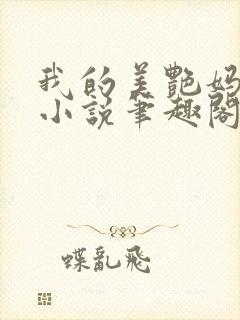 我的美艷妈
小说筆趣閣
蝶亂飛